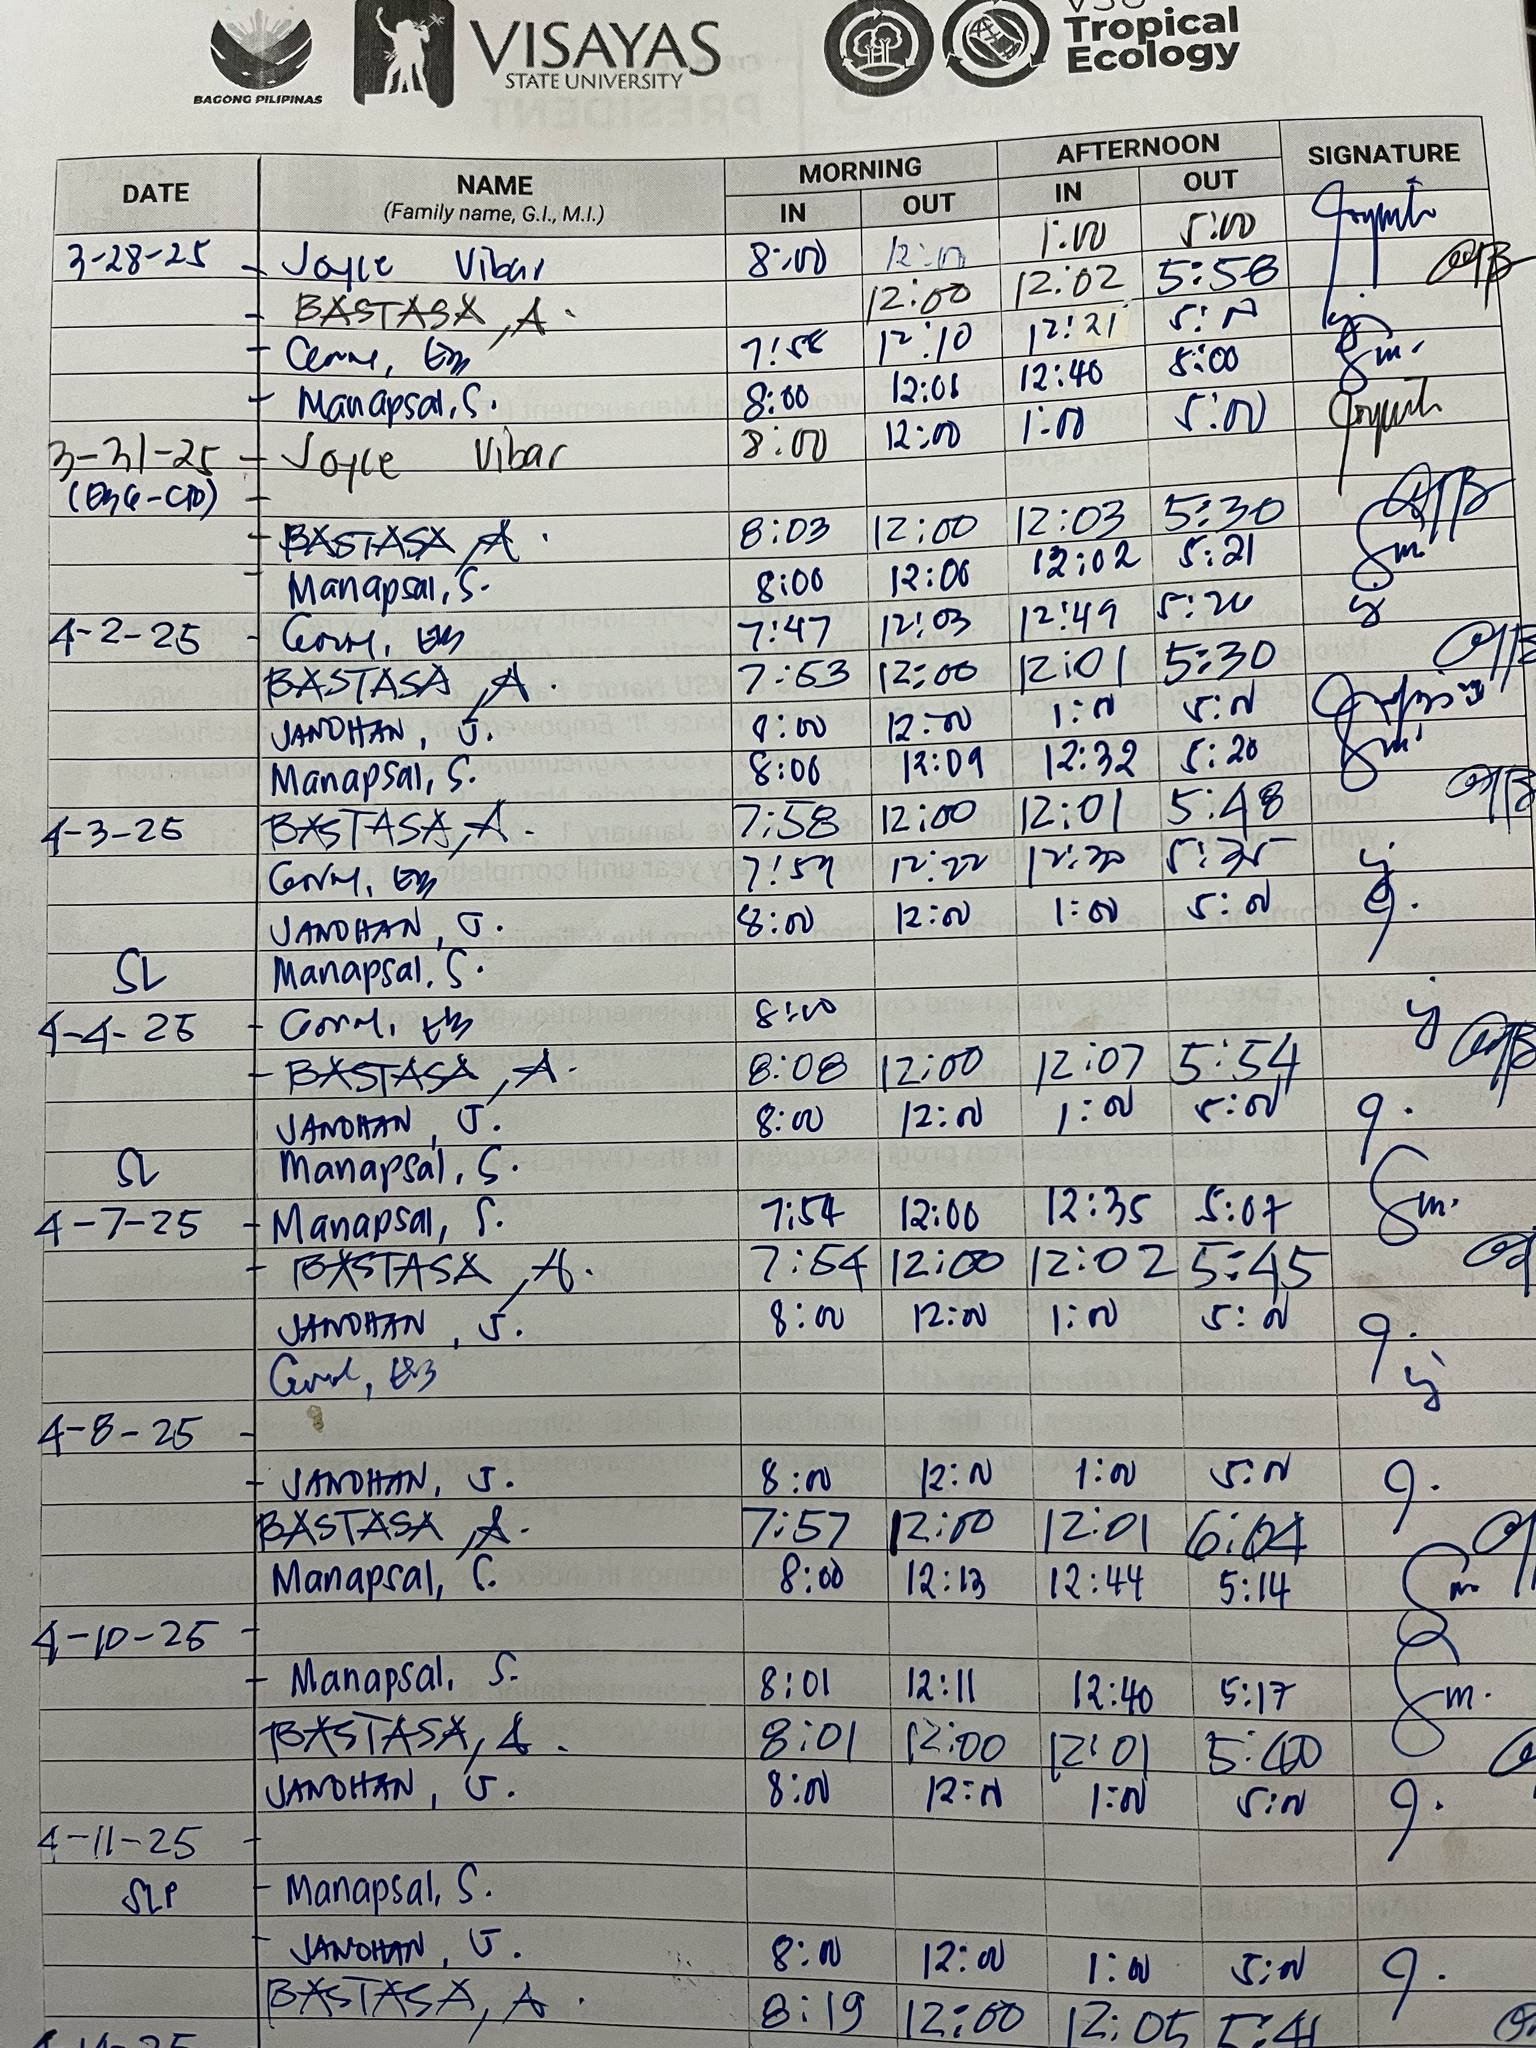 BAGONG PILIPINAS
VISAYAS
STATE UNIVERSITY
Tropical
Ecology
DATE NAME (Family name, G.I., M.I.) MORNING IN OUT AFTERNOON IN OUT SIGNATURE
3-28-25 - Joyce Vibar 8:00 12:00 1:00 5:00
- BASTASA, A. 12:00 12:02 5:58
- 7:58 12:10 12:21 5:00
- Manapsal, S. 8:00 12:01 12:40 5:00 Sm.
3-31-25 - Joyce Vibar 8:00 12:00 1:00 5:00
-
- BASTASA, A. 8:03 12:00 12:03 5:30
- Manapsal, S. 8:00 12:00 12:02 5:21 Sm.
4-2-25 - 7:47 12:03 12:49 5:20
- BASTASA, A. 7:53 12:00 12:01 5:30
- JANDHAN, J. 8:00 12:00 1:00 5:00
- Manapsal, S. 8:00 12:09 12:32 5:20 Sm.
4-3-25 - BASTASA, A. 7:58 12:00 12:01 5:48
- 7:59 12:22 12:30 5:35
JANDHAN, J. 8:00 12:00 1:00 5:00 J.
SL Manapsal, S.
4-4-25 - 8:00
- BASTASA, A. 8:08 12:00 12:07 5:54
JANDHAN, J. 8:00 12:00 1:00 5:00 J.
SL Manapsal, S.
4-7-25 - Manapsal, S. 7:54 12:00 12:35 5:07 Sm.
- BASTASA, A. 7:54 12:00 12:02 5:45
JANDHAN, J. 8:00 12:00 1:00 5:00 J.
4-8-25 -
- JANDHAN, J. 8:00 12:00 1:00 5:00 J.
BASTASA, A. 7:57 12:00 12:01 6:04
Manapsal, S. 8:00 12:13 12:44 5:14 Sm
4-10-25 -
- Manapsal, S. 8:01 12:11 12:40 5:17 Sm.
BASTASA, A. 8:01 12:00 12:01 5:40
JANDHAN, J. 8:00 12:00 1:00 5:00 J.
4-11-25 -
SLP - Manapsal, S.
- JANDHAN, J. 8:00 12:00 1:00 5:00 J.
BASTASA, A. 8:19 12:00 12:05 5:41